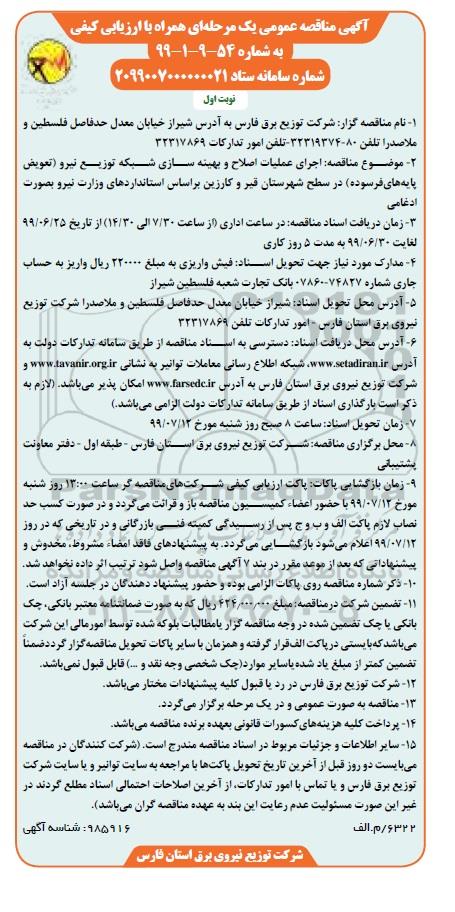 آگهی مناقصه عمومی یک مرحله‌ای همراه با ارزیابی کیفی
به شماره ۵۴-۹-۱-۹۹
شماره سامانه ستاد ۲۰۹۹۰۰۷۰۰۰۰۰۰۰۲۱
نوبت اول
۱- نام مناقصه گزار: شرکت توزیع برق فارس به آدرس شیراز خیابان معدل حدفاصل فلسطین و
ملاصدرا تلفن ۸۰-۳۲۳۱۹۳۷۴-تلفن امور تدارکات ۳۲۳۱۷۸۶۹
۲- موضــوع مناقصه: اجرای عملیات اصلاح و بهینه ســازی شــبکه توزیــع نیرو (تعویض
پایه‌های‌فرسوده) در سطح شهرستان قیر و کارزین براساس استانداردهای وزارت نیرو بصورت
ادغامی
۳- زمان دریافت اسناد مناقصه: در ساعت اداری (از ساعت ۷/۳۰ الی ۱۴/۳۰) از تاریخ ۹۹/۰۶/۲۵
لغایت ۹۹/۰۶/۳۰ به مدت ۵ روز کاری
۴- مدارک مورد نیاز جهت تحویل اســناد: فیش واریزی به مبلغ ۲۲۰۰۰۰ ریال واریز به حساب
جاری شماره ۷۴۸۲۷-۰۷۸۶۰ بانک تجارت شعبه فلسطین شیراز
۵- آدرس محل تحویل اسناد: شیراز خیابان معدل حدفاصل فلسطین و ملاصدرا شرکت توزیع
نیروی برق استان فارس - امور تدارکات تلفن ۳۲۳۱۷۸۶۹
۶- آدرس محل دریافت اسناد: دسترسی به اســناد مناقصه از طریق سامانه تدارکات دولت به
آدرس www.setadiran.ir، شبکه اطلاع رسانی معاملات توانیر به نشانی www.tavanir.org.ir و
شرکت توزیع نیروی برق استان فارس به آدرس www.farsedc.ir امکان پذیر می‌باشد. (لازم به
ذکر است بارگذاری اسناد از طریق سامانه تدارکات دولت الزامی می‌باشد.)
۷- زمان تحویل اسناد: ساعت ۸ صبح روز شنبه مورخ ۹۹/۰۷/۱۲
۸- محل برگزاری مناقصه: شــرکت توزیع نیروی برق اســتان فارس - طبقه اول - دفتر معاونت
پشتیبانی
۹- زمان بازگشایی پاکات: پاکت ارزیابی کیفی شــرکت‌های‌مناقصه گر ساعت ۱۳:۰۰ روز شنبه
مورخ ۹۹/۰۷/۱۲ با حضور اعضاء کمیســیون مناقصه باز و قرائت می‌گردد و در صورت کسب حد
نصاب لازم پاکت الف و ب و ج پس از رســیدگی کمیته فنــی بازرگانی و در تاریخی که در روز
۹۹/۰۷/۱۲ اعلام می‌شود بازگشــایی می‌گردد. به پیشنهادهای فاقد امضاء مشروط، مخدوش و
پیشنهاداتی که بعد از موعد مقرر در بند ۷ آگهی مناقصه واصل شود ترتیب اثر داده نخواهد شد.
۱۰- ذکر شماره مناقصه روی پاکات الزامی بوده و حضور پیشنهاد دهندگان در جلسه آزاد است.
۱۱- تضمین شرکت درمناقصه: مبلغ ۴۲۴/۰۰۰/۰۰۰ ریال که به صورت ضمانتنامه معتبر بانکی، چک
بانکی یا چک تضمین شده در وجه مناقصه گزار یامطالبات بلوکه شده توسط امورمالی این شرکت
می‌باشدکه‌بایستی درپاکت الف‌قرار گرفته و همزمان با سایر پاکات تحویل مناقصه‌گزار گرددضمناً
تضمین کمتر از مبلغ یاد شده‌یاسایر موارد(چک شخصی وجه نقد و ...) قابل قبول نمی‌باشد.
۱۲- شرکت توزیع برق فارس در رد یا قبول کلیه پیشنهادات مختار می‌باشد.
۱۳- مناقصه به صورت عمومی و در یک مرحله برگزار می‌گردد.
۱۴- پرداخت کلیه هزینه‌های‌کسورات قانونی بعهده برنده مناقصه می‌باشد.
۱۵- سایر اطلاعات و جزئیات مربوط در اسناد مناقصه مندرج است. (شرکت کنندگان در مناقصه
می‌بایست دو روز قبل از آخرین تاریخ تحویل پاکت‌ها با مراجعه به سایت توانیر و یا سایت شرکت
توزیع برق فارس و یا تماس با امور تدارکات، از آخرین اصلاحات احتمالی اسناد مطلع گردند در
غیر این صورت مسئولیت عدم رعایت این بند به عهده مناقصه گران می‌باشد).
۶۳۲۲/م.الف
شناسه آگهی :۹۸۵۹۱۶
شرکت توزیع نیروی برق استان فارس